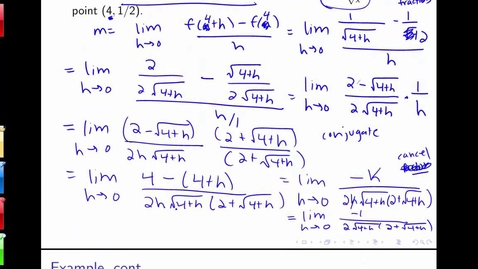 point (4, 1/2).
m = lim h→0 f(4+h) - f(4) / h = lim h→0 (1/√(4+h) - 1/2) / h
= lim h→0 (2/(2√(4+h)) - √(4+h)/(2√(4+h))) / (h/1) = lim h→0 (2-√(4+h))/(2√(4+h)) · 1/h
= lim h→0 (2-√(4+h))/(2h√(4+h)) (2+√(4+h))/(2+√(4+h)) conjugate
cancel
= lim h→0 4-(4+h) / 2h√(4+h)(2+√(4+h)) = lim h→0 -h / 2h√(4+h)(2+√(4+h))
= lim h→0 -1 / 2√(4+h)(2+√(4+h))
Example, cont.